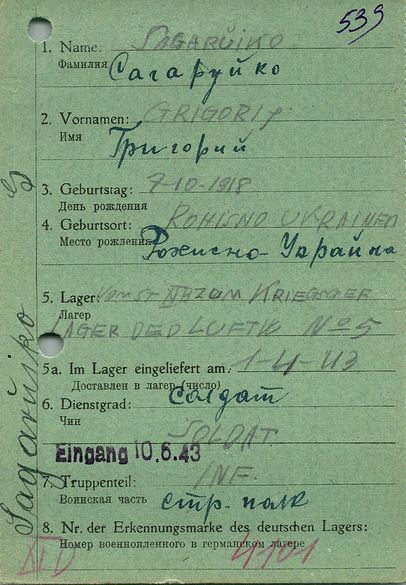 539
1. Name: SAGARŬIKO
Фамилия Сагаруйко
2. Vornamen: GRIGORIJ
Имя Григорий
3. Geburtstag: 7-10-1918
День рождения
4. Geburtsort: ROHISNO UKRAINEN
Место рождения Рожисно-Украйна
5. Lager: KRIEGSGEF
Лагер LAGER DED LUFTW No 5
5a. Im Lager eingeliefert am: 1-4-43
Доставлен в лагер (число)
6. Dienstgrad: солдат
Чин SOLDAT
Eingang 10.6.43
7. Truppenteil: INF.
Воинская часть стр. полк
8. Nr. der Erkennungsmarke des deutschen Lagers:
Номер военнопленного в германском лагере
4101
Sagarŭiko G